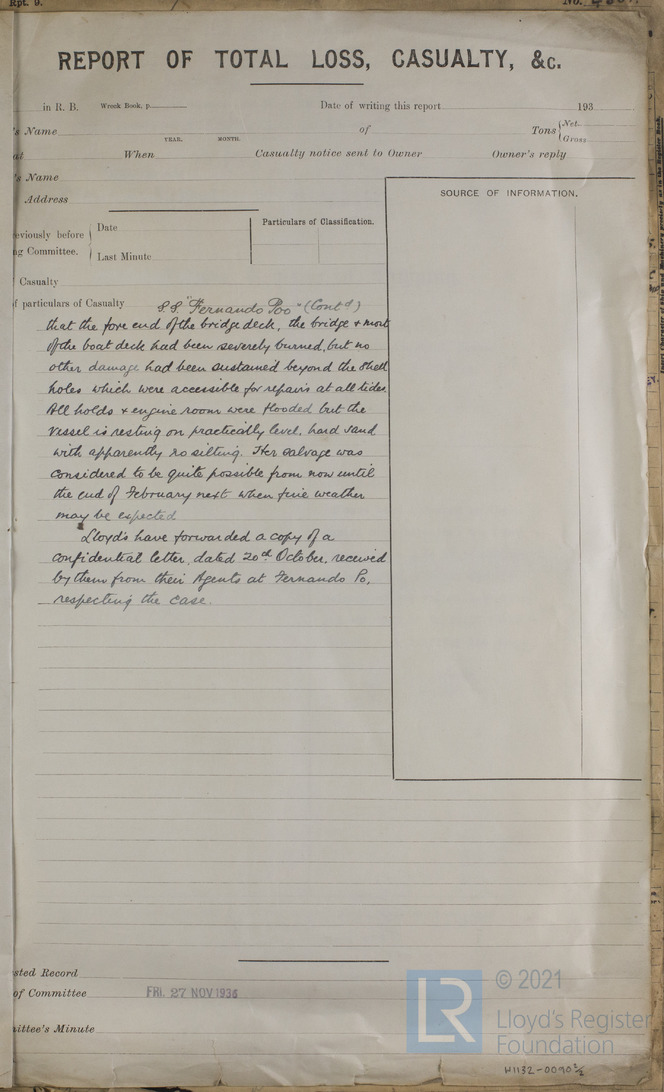 Rpt. 9.
No.
REPORT OF TOTAL LOSS, CASUALTY, &c.
in R. B. Wreck Book, p. Date of writing this report 193
's Name of Tons { Net
Gross
YEAR. MONTH.
at When Casualty notice sent to Owner Owner's reply
's Name
Address
SOURCE OF INFORMATION.
eviously before
ng Committee.
Date
Last Minute
Particulars of Classification.
Casualty
f particulars of Casualty S.S. "Fernando Poo" (Contd)
that the fore end of the bridge deck, the bridge & most
of the boat deck had been severely burned, but no
other damage had been sustained beyond the shell
holes which were accessible for repairs at all tides
All holds & engine room were flooded but the
vessel is resting on practically level, hard sand
with apparently no silting. Her salvage was
considered to be quite possible from now until
the end of February next when fine weather
may be expected
Lloyd's have forwarded a copy of a
confidential letter, dated 20th October, received
by them from their Agents at Fernando Po,
respecting the case.
sted Record
of Committee FRI. 27 NOV 1936
ittee's Minute
LR
© 2021
Lloyd's Register
Foundation
W1132-0090 1/2